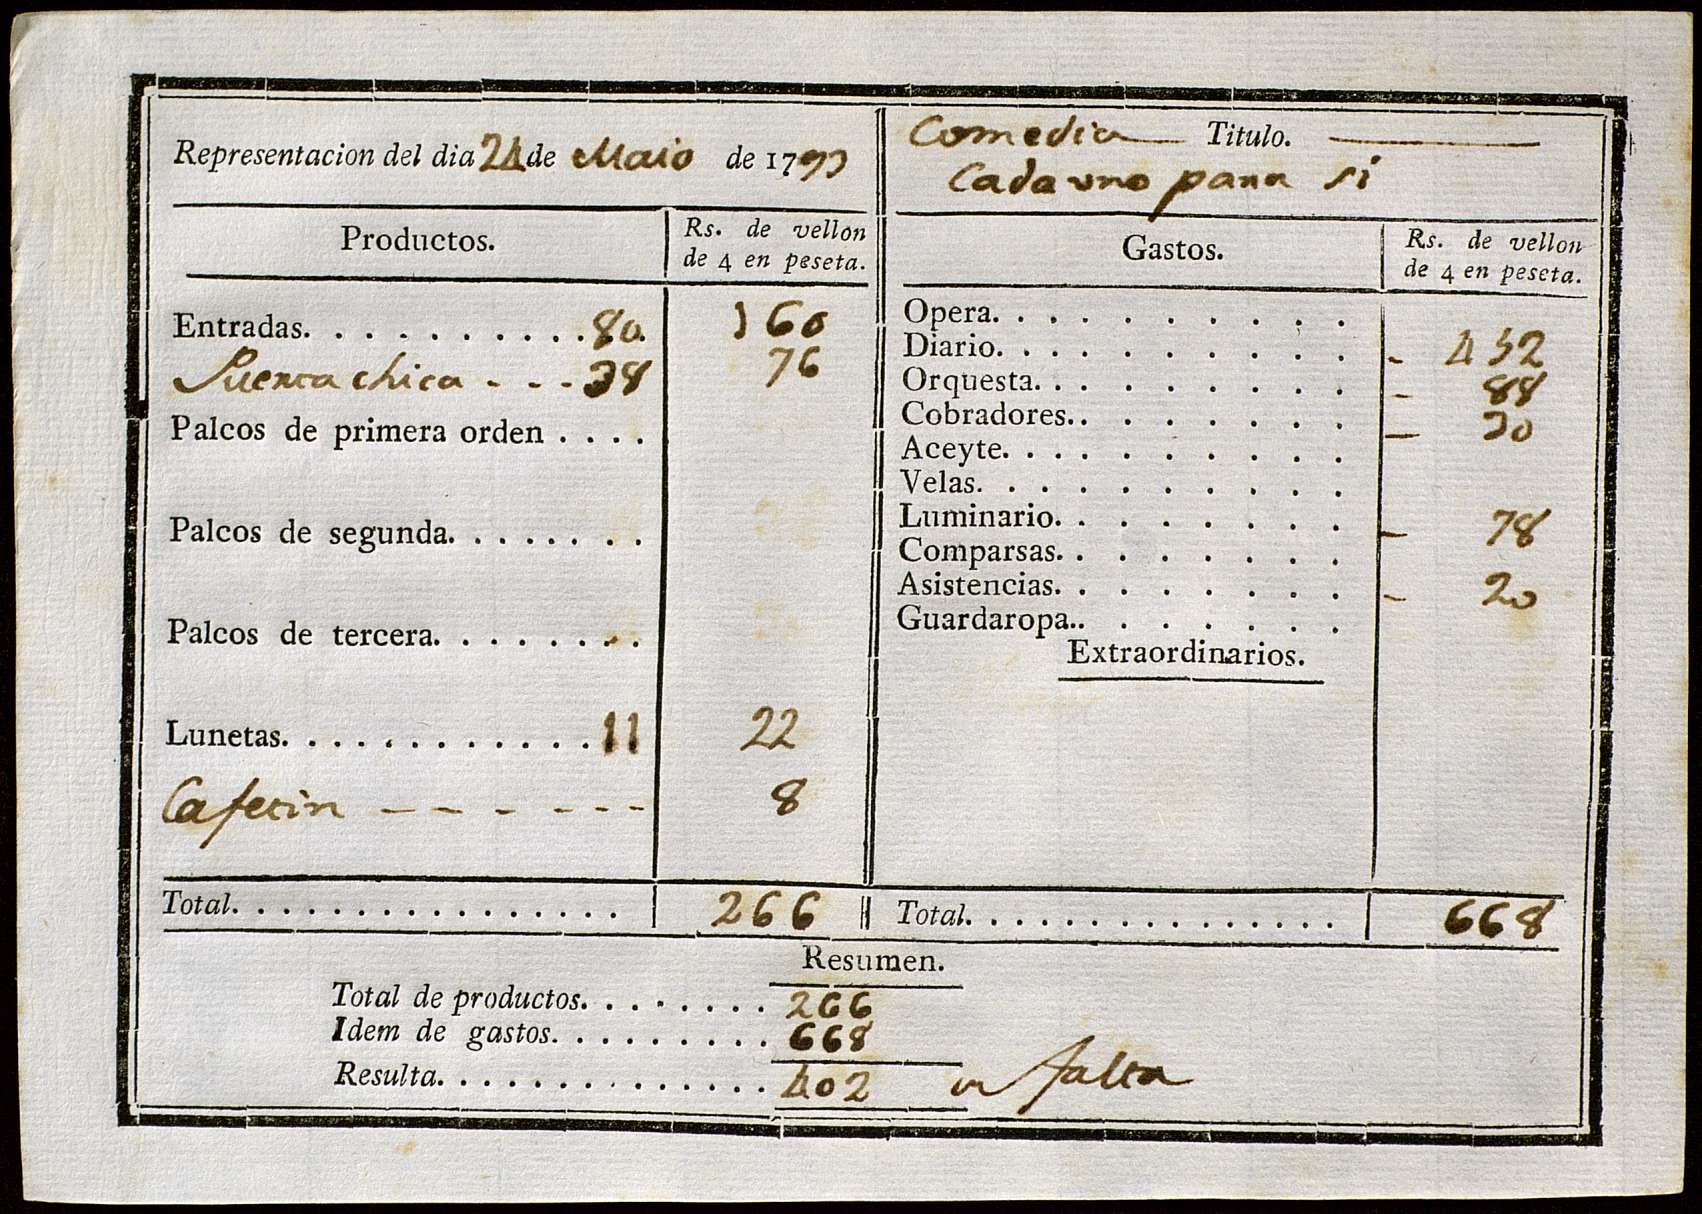 Representacion del dia 24 de Maio de 1793
Comedia Titulo.
Cada uno para si
Productos.
Rs. de vellon
de 4 en peseta.
Entradas. . . . . . . . . . 80. 160
Puerta chica - - - 38 76
Palcos de primera orden . . . .
Palcos de segunda. . . . . . . .
Palcos de tercera. . . . . . . .
Lunetas. . . . . . . . . . . . . 11 22
Cafetin - - - - - - - 8
Total. . . . . . . . . . . . . . . . 266
Gastos.
Rs. de vellon
de 4 en peseta.
Opera. . . . . . . . . .
Diario. . . . . . . . . . - 452
Orquesta. . . . . . . . . - 88
Cobradores.. . . . . . . - 30
Aceyte. . . . . . . . . .
Velas. . . . . . . . . .
Luminario. . . . . . . . - 78
Comparsas. . . . . . . .
Asistencias. . . . . . . . - 20
Guardaropa.. . . . . . .
Extraordinarios.
Total. . . . . . . . . . . . . . . 668
Resumen.
Total de productos. . . . . . . . 266
Idem de gastos. . . . . . . . . 668
Resulta. . . . . . . . . . . . . . 402 en falta